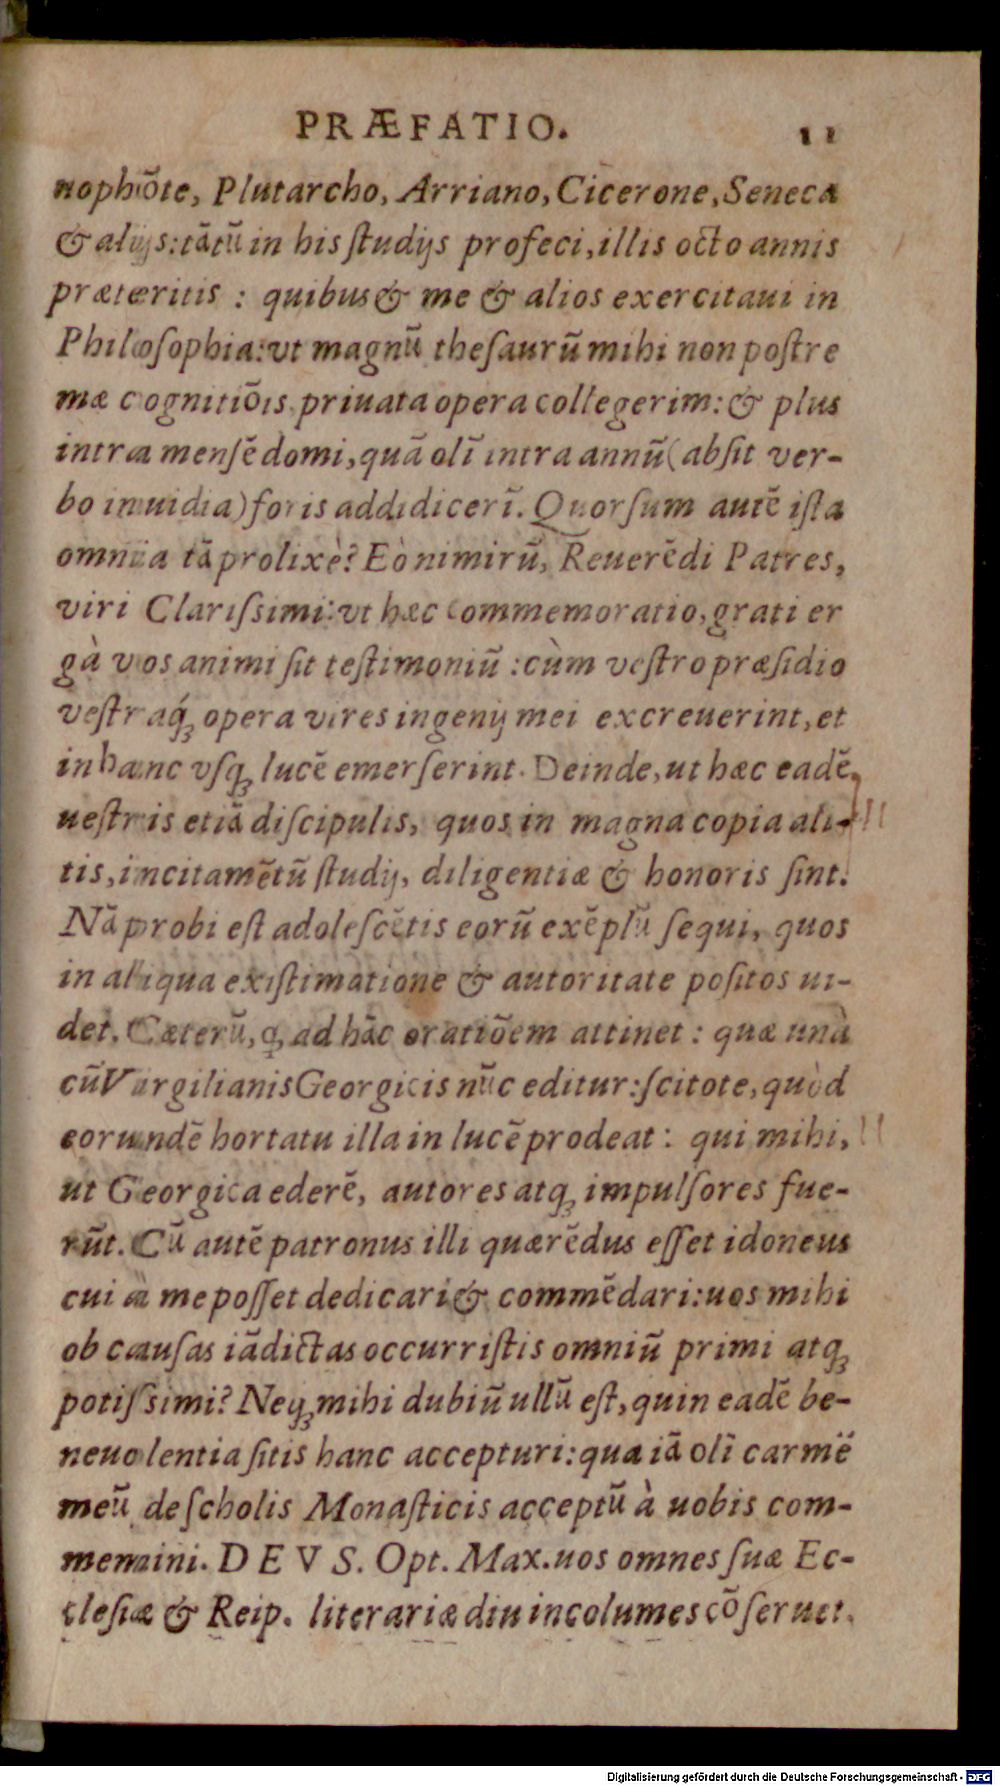 PRÆFATIO. 11
nophōte, Plutarcho, Arriano, Cicerone, Seneca
& alijs: tātū in his ſtudijs profeci, illis octo annis
præteritis : quibus & me & alios exercitaui in
Philoſophia: vt magnū theſaurū mihi non poſtre
mæ cognitiōis priuata opera collegerim: & plus
intra menſē domi, quā olī intra annū (abſit ver-
bo inuidia) foris addidicerī. Quorſum autē iſta
omnia tā prolixè? Eò nimirū, Reuerēdi Patres,
viri Clariſsimi: vt hæc commemoratio, grati er
gà vos animi ſit teſtimoniū : cùm veſtro præſidio
veſtraq́ꝫ opera vires ingenij mei excreuerint, et
in hanc vſqꝫ lucē emerſerint. Deinde, ut hæc eadē
ueſtris etiā diſcipulis, quos in magna copia ali-
tis, incitamētū ſtudij, diligentiæ & honoris ſint.
Nā probi eſt adoleſcētis eorū exēplū ſequi, quos
in aliqua exiſtimatione & autoritate poſitos ui-
det. Cæterū, ꝙ ad hāc oratiōem attinet : quæ unà
cū Virgilianis Georgicis nūc editur: ſcitote, quòd
eorundē hortatu illa in lucē prodeat : qui mihi,
ut Georgica ederē, autores atqꝫ impulſores fue-
rūt. Cū autē patronus illi quærēdus eſſet idoneus
cui à me poſſet dedicari & commēdari: uos mihi
ob cauſas iā dictas occurriſtis omniū primi atqꝫ
potiſsimi? Neqꝫ mihi dubiū ullū eſt, quin eadē be-
neuolentia ſitis hanc accepturi: qua iā olī carmē
meū de ſcholis Monaſticis acceptū à uobis com-
memini. DEVS. Opt. Max. uos omnes ſuæ Ec-
cleſiæ & Reip. literariæ diu incolumes cōſeruet.
Digitalisierung gefördert durch die Deutsche Forschungsgemeinschaft - DFG